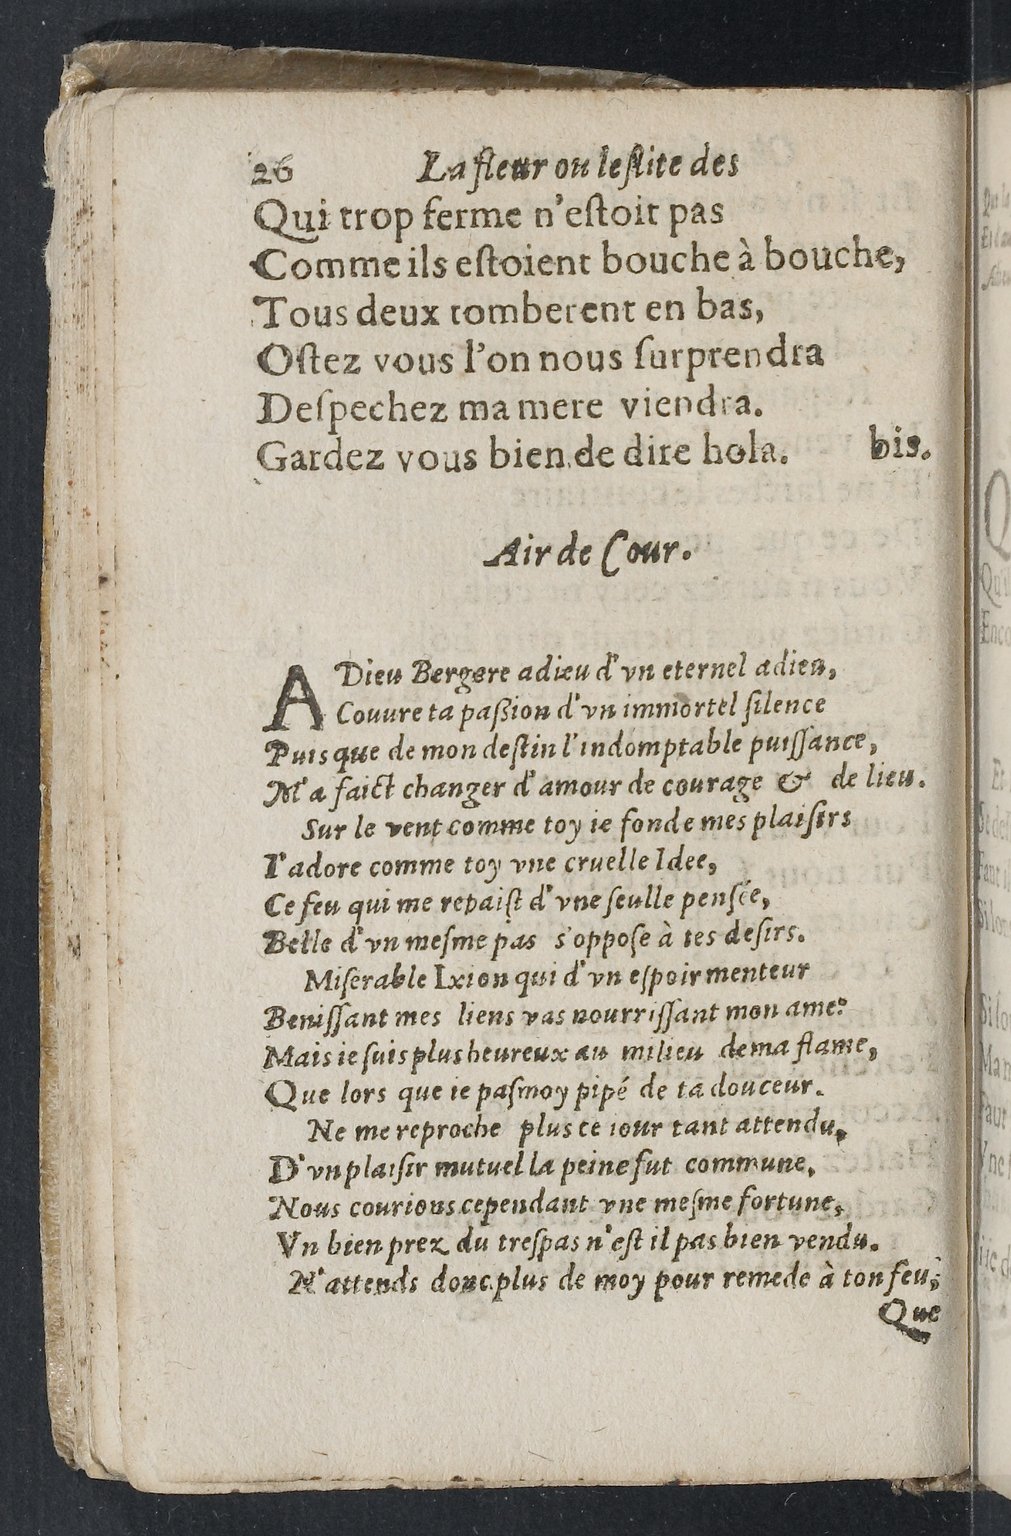 26 La fleur ou leſlite des
Qui trop ferme n'eſtoit pas
Comme ils eſtoient bouche à bouche,
Tous deux tomberent en bas,
Oſtez vous l'on nous ſurprendra
Deſpechez ma mere viendra.
Gardez vous bien de dire hola. bis.
Air de Cour.
ADieu Bergere adieu d'vn eternel adieu,
Couure ta paßion d'vn immortel ſilence
Puis que de mon deſtin l'indomptable puiſſance,
M'a faict changer d'amour de courage & de lieu.
Sur le vent comme toy ie fonde mes plaiſirs
I'adore comme toy vne cruelle Idee,
Ce feu qui me repaiſt d'vne ſeulle penſée,
Belle d'vn meſme pas s'oppoſe à tes deſirs.
Miſerable Ixion qui d'vn eſpoir menteur
Beniſſant mes liens vas nourriſſant mon ame:
Mais ie ſuis plus heureux au milieu de ma flame,
Que lors que ie paſmoy pipé de ta douceur.
Ne me reproche plus ce iour tant attendu,
D'vn plaiſir mutuel la peine fut commune,
Nous courions cependant vne meſme fortune,
Vn bien prez du treſpas n'eſt il pas bien vendu.
N'attends donc plus de moy pour remede à ton feu,
Que